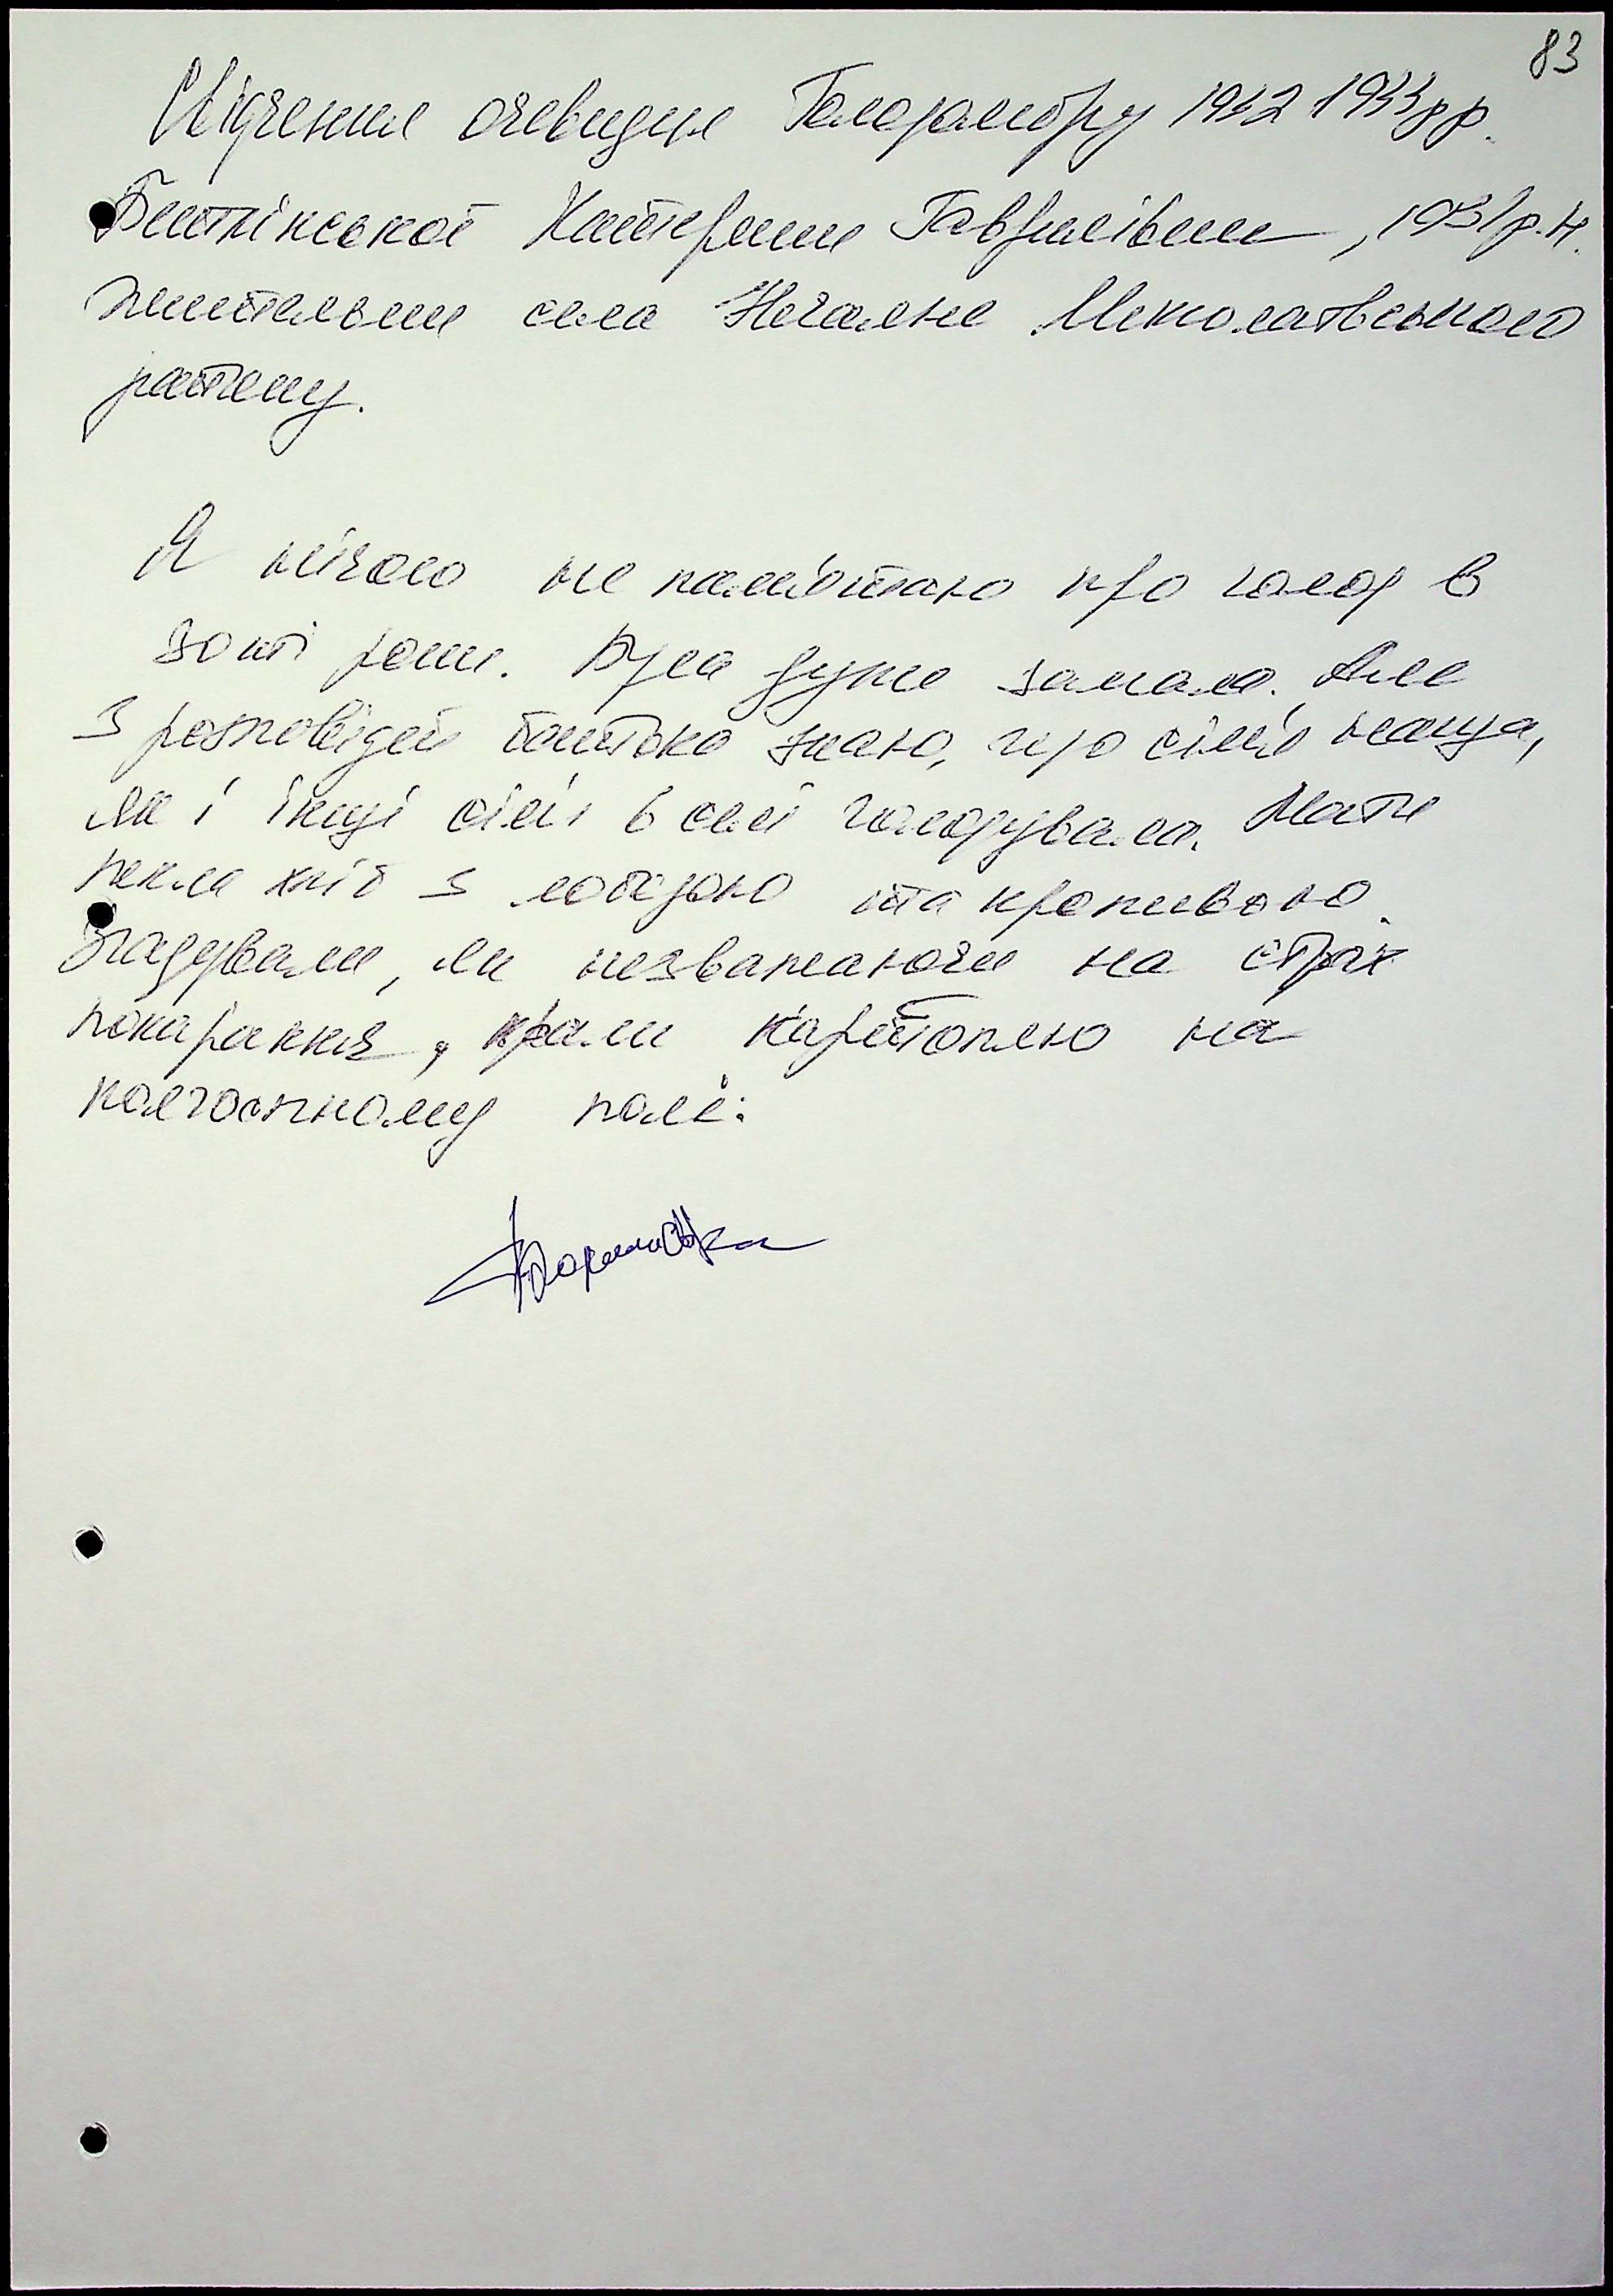 83
Свідчення очевидця Голодомору 1932 1933 рр.
Катерини Гаврилівни, 1931 р.н.
жительки села Нечаяне Миколаївського
району.
Я нічого не пам'ятаю про голод в
30ті роки. Була дуже замала. Але
з розповідей батьків знаю, що сім'я наша,
як і інші сім'ї в селі голодувала. Мати
пекла хліб з лободою та кропивою.
Згадували, як незважаючи на страх
покарання, крали картоплю на
колгоспному полі.